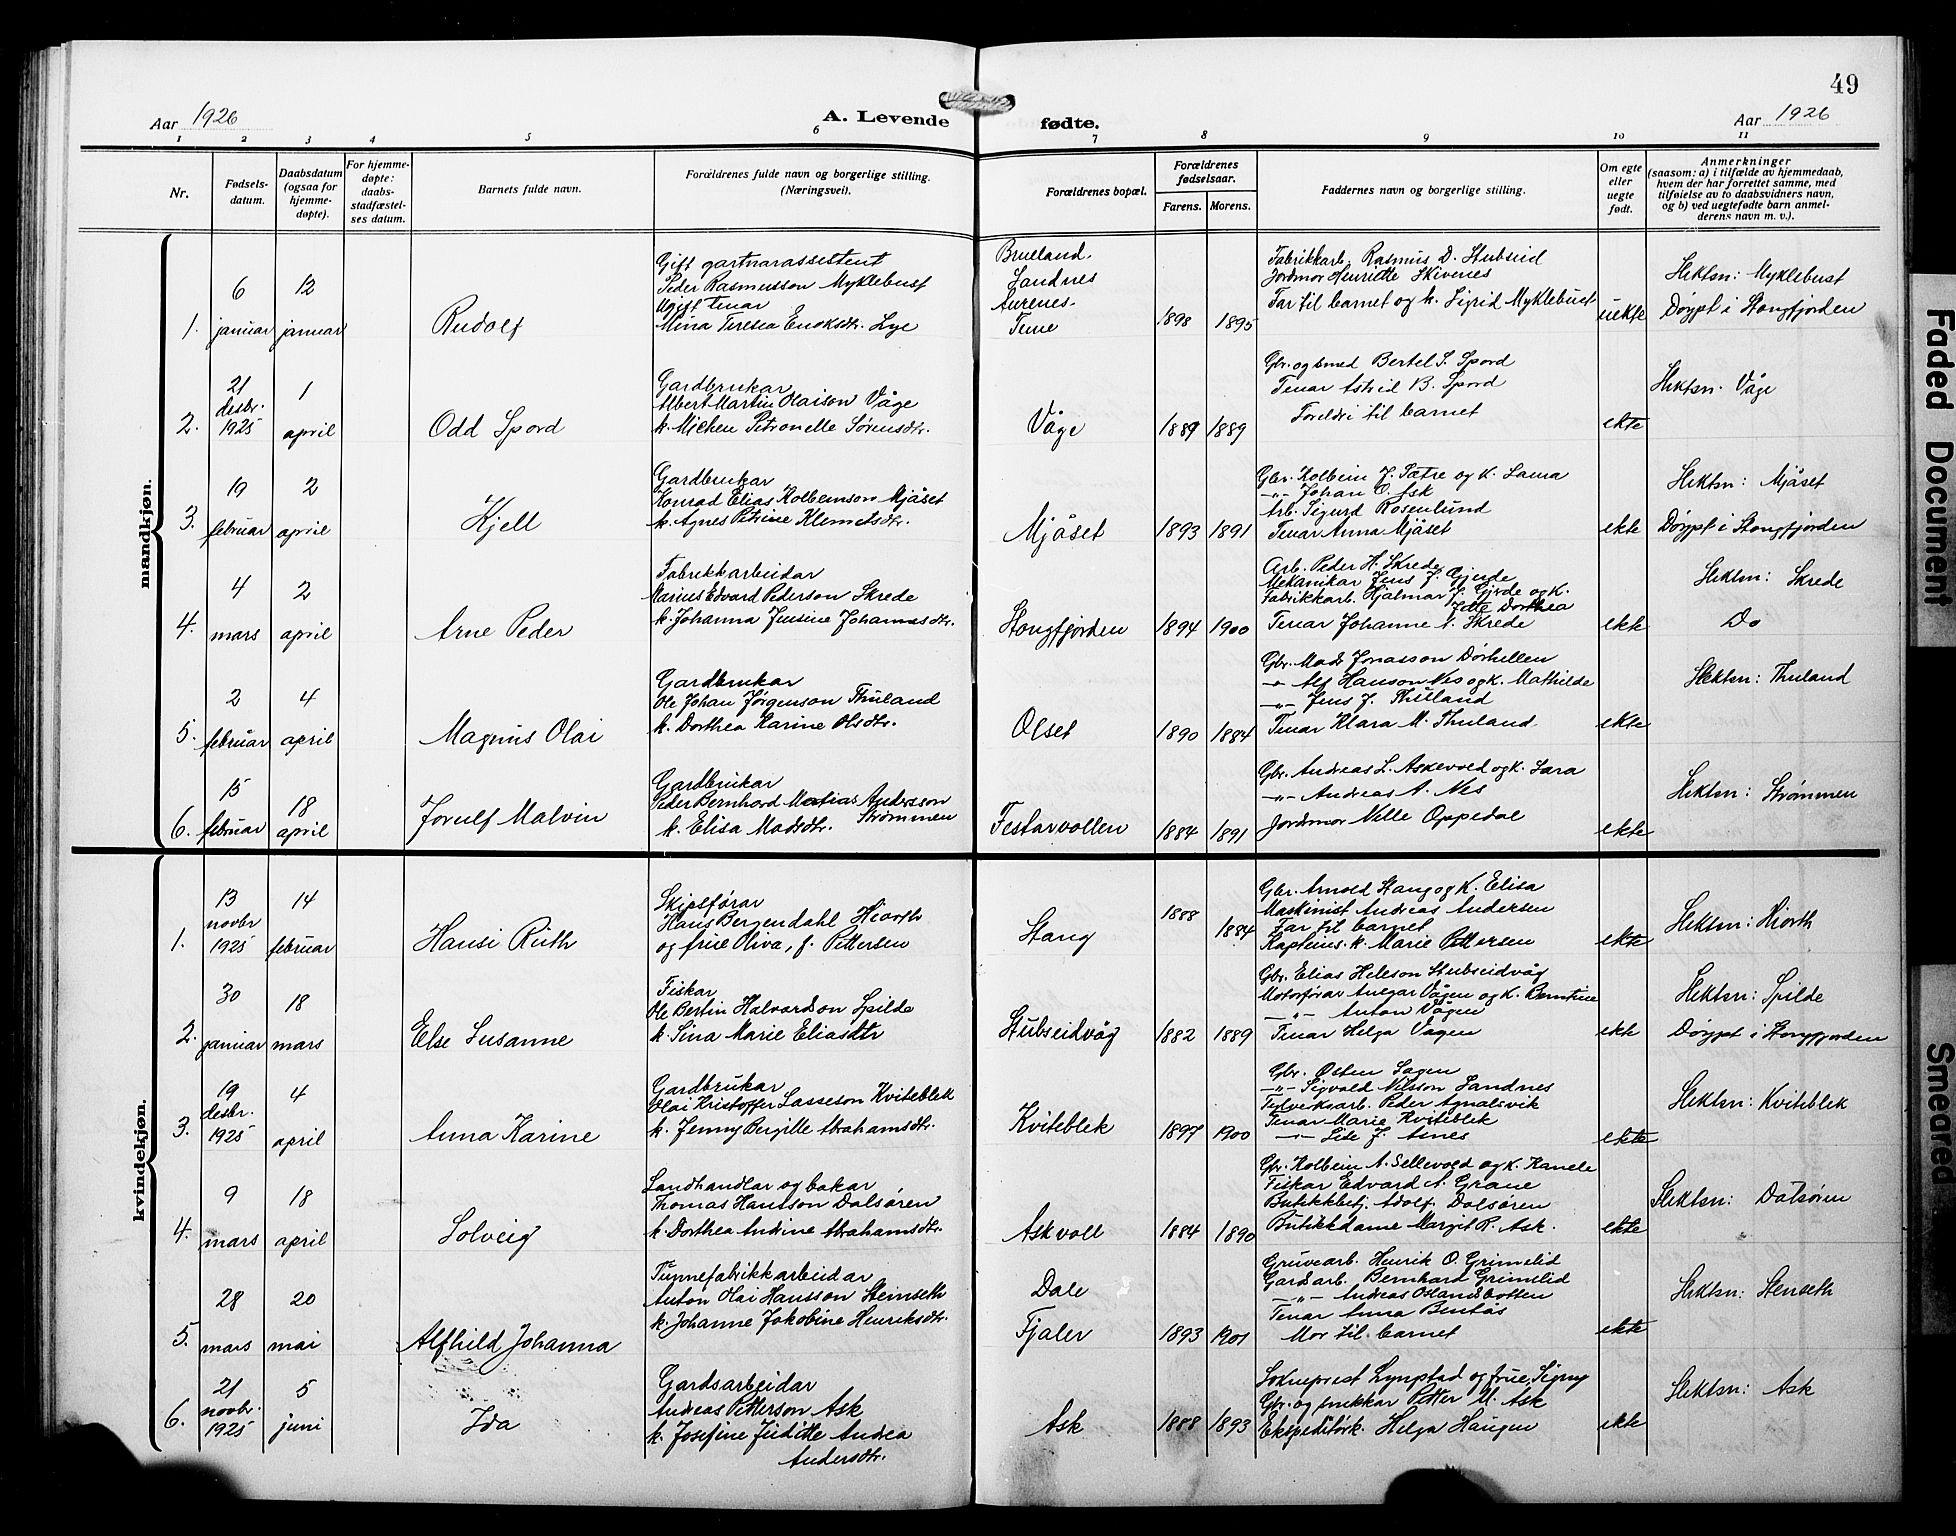 49
Aar 1926
A. Levende fødte.
Aar 1926
1 2 3 4 5 6 7 8 9 10 11
Nr.
Fødsels-
datum.
Daabsdatum
(ogsaa for
hjemme-
døpte).
For hjemme-
døpte:
daabs-
stadfæstel-
ses datum.
Barnets fulde navn.
Forældrenes fulde navn og borgerlige stilling.
(Næringsvei).
Forældrenes bopæl.
Forældrenes
fødselsaar.
Farens. Morens.
Faddernes navn og borgerlige stilling.
Om egte
eller
uegte
født.
Anmerkninger
(saasom: a) i tilfælde av hjemmedaab,
hvem der har forrettet samme, med
tilføielse av to daabsvidners navn,
og b) ved uegtefødte barn anmel-
derens navn m. v.).
mandkjøn.
1.
6
januar
12
januar
Rudolf
Gift gartnarassistent
Peder Rasmusson Myklebust
Ugift tenar
Mina Teresia Enoksdtr. Lye
Brulland.
Sandnes
Aurenes.
Time
1898 1895
Fabrikkarb. Rasmus D. Stubseid
Jordmor Henriette Skivenes
Far til barnet og k. Sigrid Myklebust
uekte
Slektsn: Myklebust
Døypt i Stongfjorden
2.
21
desbr.
1925
1
april
Odd Spord
Gardbrukar
Albert Martin Olaison Våge
k. Michen Petronelle Sørensdtr.
Våge
1889 1889
Gbr. og smed Bertel S. Spord
Tenar Astrid B. Spord
Foreldri til barnet
ekte
Slektsn. Våge
3.
19
februar
2
april
Kjell
Gardbrukar
Konrad Elias Kolbeinson Mjåset
k. Agnes Petrine Klemetsdtr.
Mjåset
1893 1891
Gbr. Kolbein J. Sætre og k. Lama
-"- Johan O. Ask
Arb. Sigurd Rosenlund
Tenar Anna Mjåset
ekte
Slektsn: Mjåset
Døypt i Stongfjorden
4.
4
mars
2
april
Arne Peder
Fabrikkarbeidar
Marius Edvard Pederson Skrede
k. Johanna Jensine Johannesdtr.
Stongfjorden
1894 1900
Arb. Peder H. Skrede
Mekanikar Jens J. Gjerde
Fabrikkarb. Hjalmar J. Gjerde og k.
Dorthea
Tenar Johanne N. Skrede
ekte
Slektsn: Skrede
Do
5.
2
februar
4
april
Magnus Olai
Gardbrukar
Ole Johan Jørgenson Thuland
k. Dorthea Karine Olsdtr.
Olset
1890 1884
Gbr. Mads Jonasson Dørhellen
-"- Alf Hanson Nes og k. Mathilde
-"- Jens J. Thuland
Tenar Klara M. Thuland
ekte
Slektsn: Thuland
6.
15
februar
18
april
Jorulf Malvin
Gardbrukar
Peder Bernhard Matias Andersson
Strømmen
k. Elisa Madsdtr.
Festarvollen
1884 1891
Gbr. Andreas L. Askevold og k. Sara
-"- Andreas A. Nes
Jordmor Nelle Oppedal
ekte
Slektsn: Strømmen
kvindekjøn.
1.
13
novbr
1925
14
februar
Hansi Ruth
Skipsførar
Hans Bergendahl Hiorth
og frue Oliva, f. Pettersen
Stang
1888 1884
Gbr. Arnold Stang og k. Elisa
Maskinist Andreas Andersen
Far til barnet
Kapteins. k. Marie Pettersen
ekte
Slektsn: Hiorth
2.
30
januar
18
mars
Else Susanne
Fiskar
Ole Bertin Halvardson Spilde
k. Sina Marie Eliasdtr
Stubseidvåg
1882 1889
Gbr. Elias Heleson Stubseidvåg
Motorførar Ansgar Vågen og k. Berntine
-"- Anton Vågen
Tenar Helga Vågen
ekte
Slektsn: Spilde
Døypt i Stongfjorden
3.
19
desbr.
1925
4
april
Anna Karine
Gardbrukar
Olai Kristoffer Lasseson Kviteblek
k. Jenny Bergitte Abrahamsdtr.
Kviteblek
1897 1900
Gbr. Østen Sagen
-"- Sigvald Nilsson Sandnes
Peder Agnalsvik
Tenar Marie Kviteblek
-"- Lise J. Asnes
ekte
Slektsn: Kviteblek
4.
9
mars
18
april
Solveig
Landhandlar og bakar
Thomas Hansson Dalsøren
k. Dorthea Andrine Abrahamsdtr.
Askvoll
1884 1890
Gbr. Kolbein A. Sellevold og k. Kanele
Fiskar Edvard A. Grane
Butikkbetj. Adolf Dalsøren
Butikkdame Margit R. Ask.
ekte
Slektsn: Dalsøren
5.
28
mars
20
mai
Alfhild Johanna
Tunnefabrikkarbeidar
Anton Olai Hansson Steinseth
k. Johanne Jakobine Henriksdtr.
Dale
Fjaler
1893 1901
Gruvearb. Henrik O. Grimelid
Gardsarb. Bernhard Grimelid
-"- Andreas Olandsbotten
Tenar Anna Bentås
Mor til barnet
ekte
Slektsn: Stenseth
6.
21
novbr.
1925
5
juni
Ida
Gardsarbeidar
Andreas Petterson Ask
k. Josefine Juditte Andrea
Andersdtr.
Ask
1888 1893
Sokneprest Lyngstad og frue, Signy
Gbr. og snikkar Petter M. Ask
Ekspeditørk. Helga Haugen
ekte
Slektsn: Ask
Faded Document
Smeared